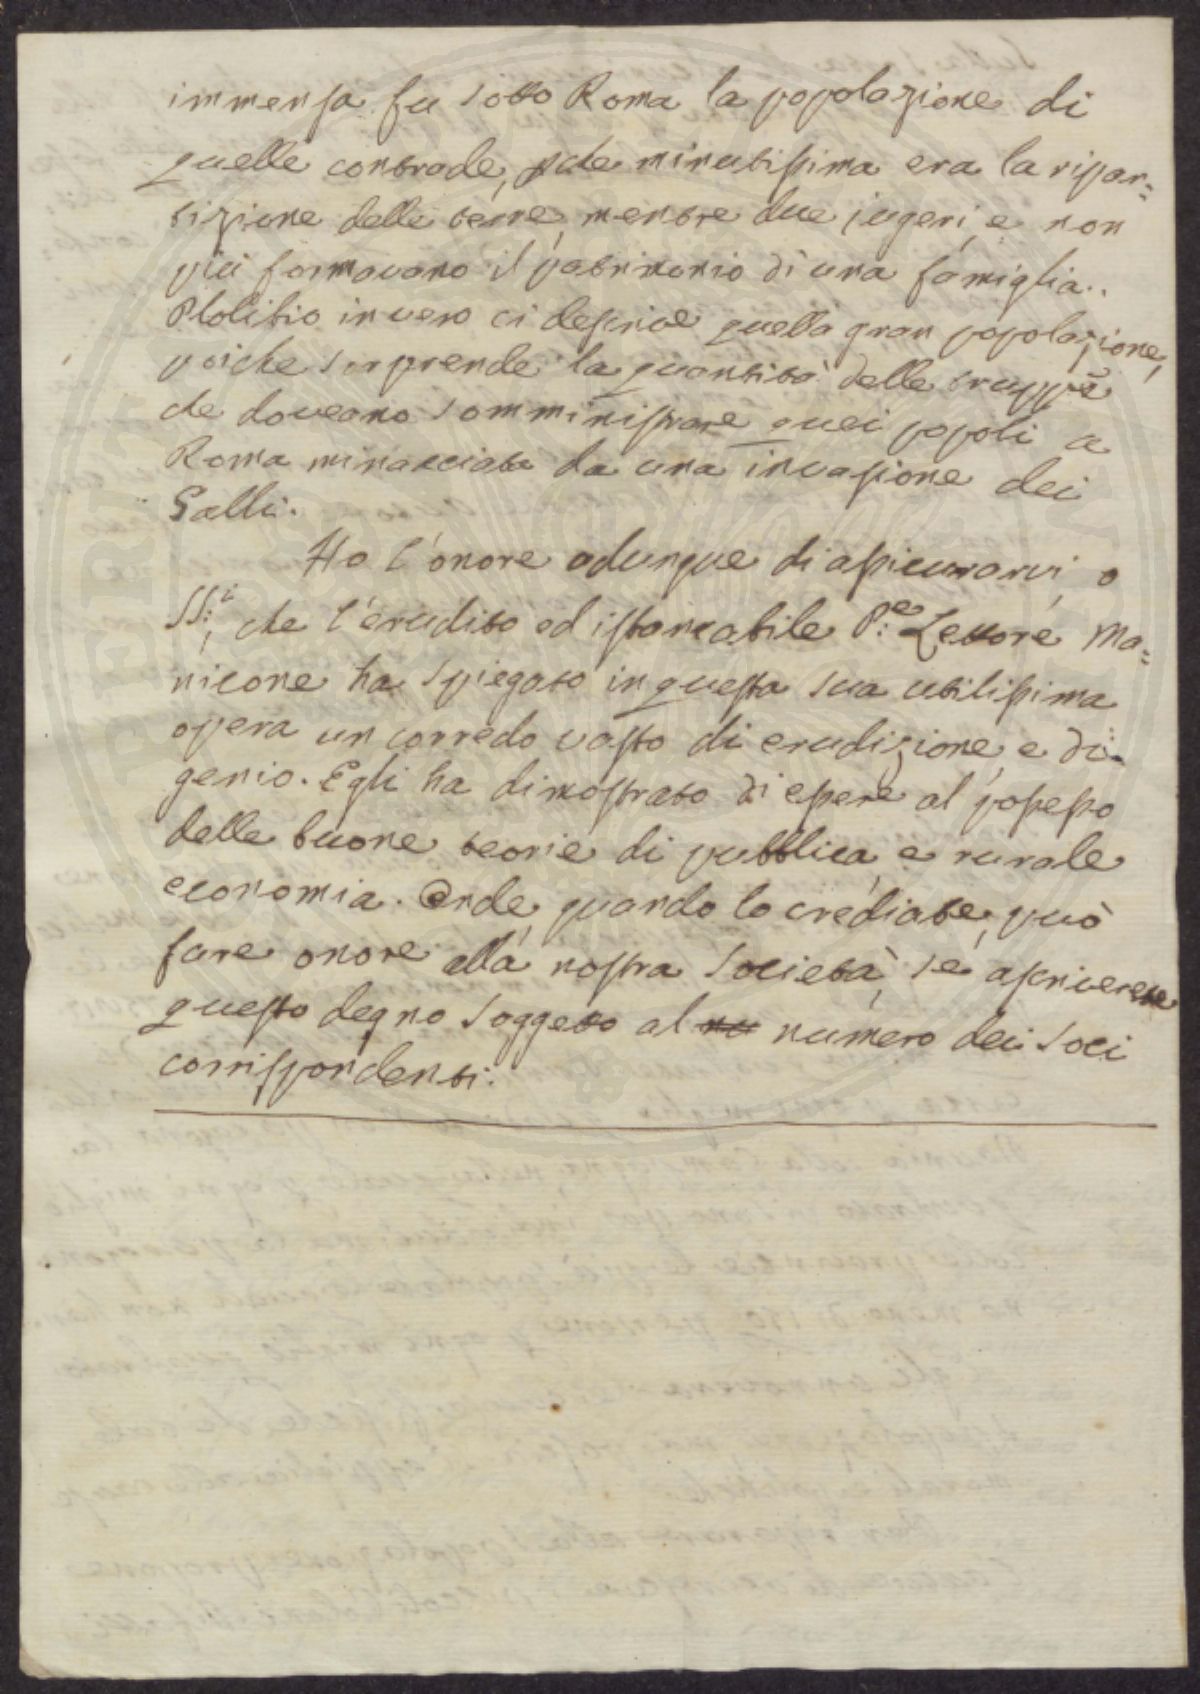 immensa fu sotto Roma la popolazione di
quelle contrade, che minutissima era la ripar=
tizione delle terre, mentre due jugeri, e non
più formavano il patrimonio di una famiglia.
Plolibio invero ci descrive quella gran popolazione,
poiche sorprende la quantità delle truppe
che doveano somministrare quei popoli a
Roma minacciata da una invasione dei
Galli.
Ho l'onore adunque di assicurarvi, o
SS:i, che l'erudito ed istancabile P:e Lettore Ma=
nicone ha spiegato in questa sua utilissima
opera un corredo vasto di erudizione, e di
genio. Egli ha dimostrato di essere al possesso
delle buone teorie di pubblica, e rurale
economia. Onde, quando lo crediate, può
fare onore alla nostra Società, se ascriverete
questo degno soggetto al nu numero dei Soci
corrispondenti.